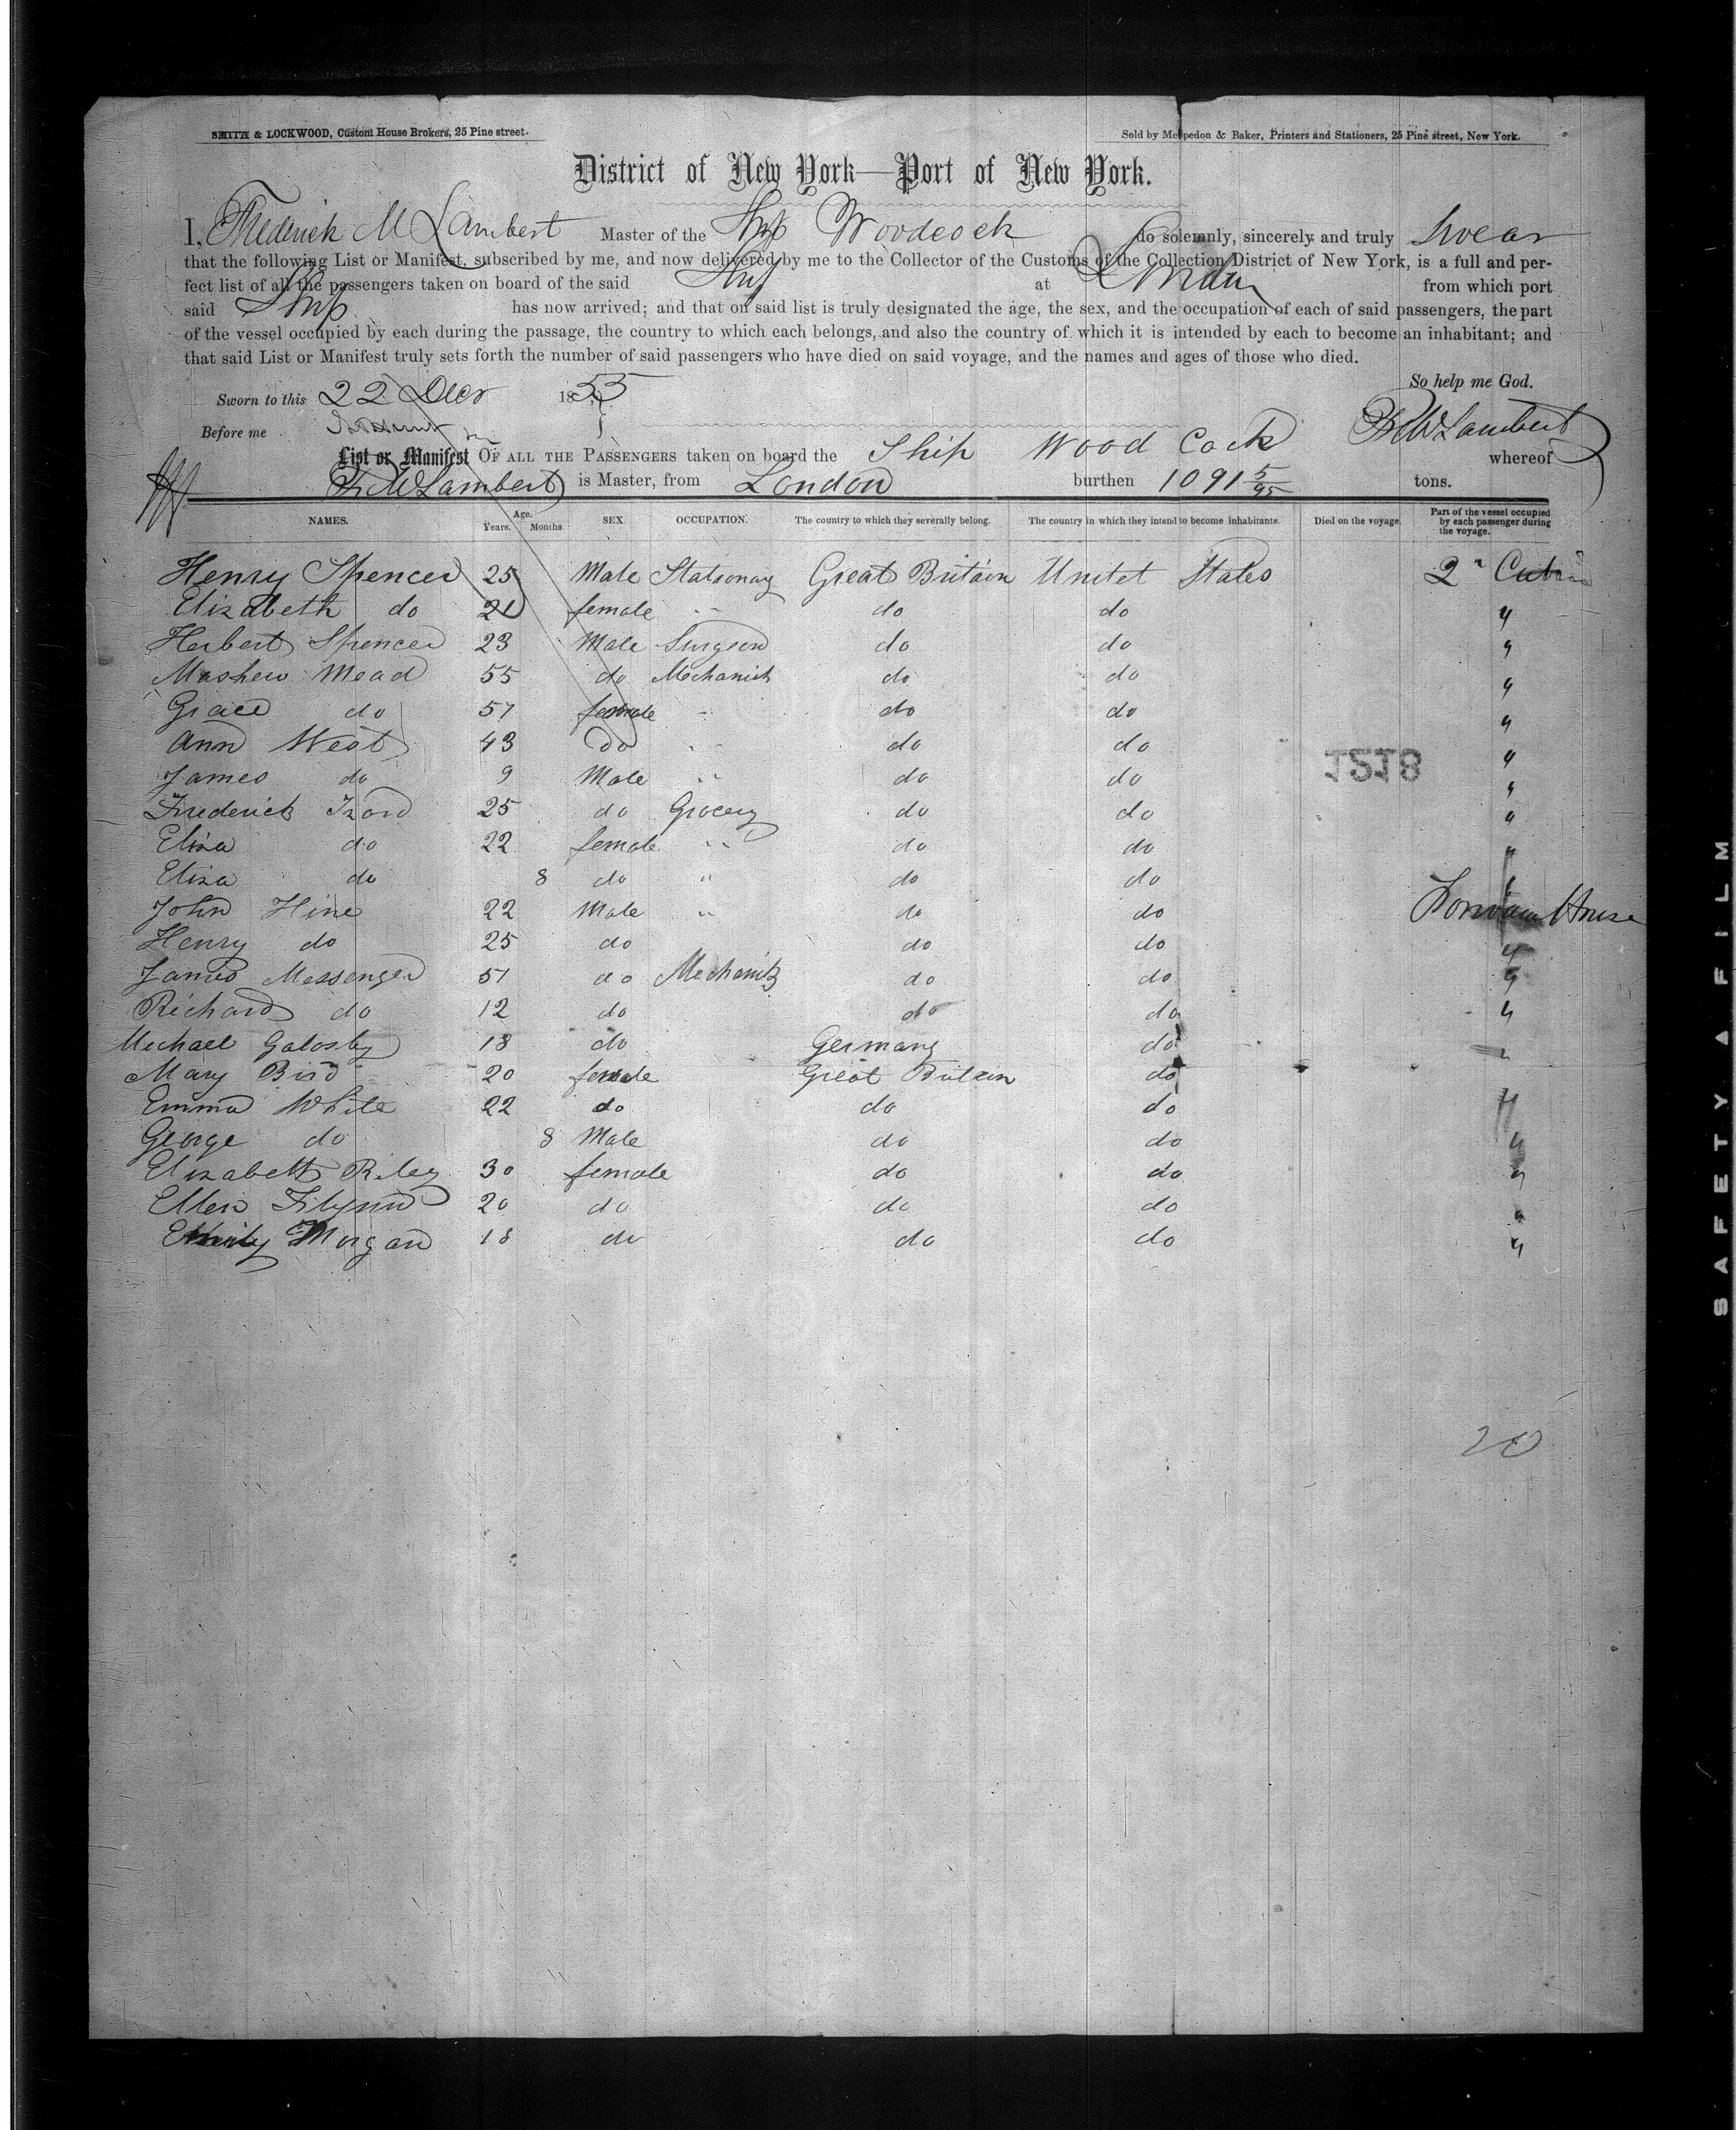 SMITH & LOCKWOOD, Custom House Brokers, 25 Pine street.
Sold by Mespedon & Baker, Printers and Stationers, 25 Pine street, New York.
District of New York—Port of New York.
I, Frederick M Lambert Master of the Ship Woodcock do solemnly, sincerely and truly Swear
that the following List or Manifest, subscribed by me, and now delivered by me to the Collector of the Customs of the Collection District of New York, is a full and per-
fect list of all the passengers taken on board of the said Ship at London from which port
said Ship has now arrived; and that on said list is truly designated the age, the sex, and the occupation of each of said passengers, the part
of the vessel occupied by each during the passage, the country to which each belongs, and also the country of which it is intended by each to become an inhabitant; and
that said List or Manifest truly sets forth the number of said passengers who have died on said voyage, and the names and ages of those who died.
So help me God.
Sworn to this 22 Decr 1855
Before me
Lambert
List or Manifest OF ALL THE PASSENGERS taken on board the Ship Wood Cock whereof
Lambert is Master, from London burthen 1091 5/95 tons.
NAMES. Age. Years. Months. SEX. OCCUPATION. The country to which they severally belong. The country in which they intend to become inhabitants. Died on the voyage. Part of the vessel occupied by each passenger during the voyage.
Henry Spencer 25 Male Stationary Great Britain Unitet States 2n Cabin
Elizabeth do 21 female " do do "
Herbert Spencer 23 Male Surgeon do do "
Mashew Mead 55 do Mechanick do do "
Grace do 57 female " do do "
Ann West 43 do " do do "
James do 9 Male " do do "
Frederick Izord 25 do Grocery do do "
Eliza do 22 female " do do "
Eliza do 8 do " do do "
John Hine 22 Male " do do House
Henry do 25 do do do "
James Messenger 51 do Mechanik do do "
Richard do 12 do do do "
Michael Galosby 18 do Germany do "
Mary Bird 20 female Great Britain do
Emma White 22 do do do "
George do 8 Male do do "
Elizabeth Riley 30 female do do "
Ellen 20 do do do "
Emily Morgan 18 do do do "
1218
20
SAFETY FILM